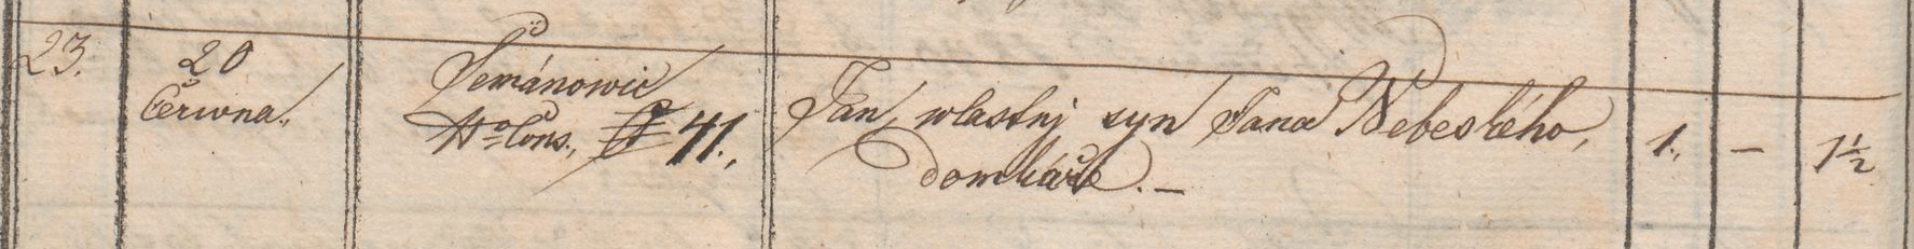 23.
20
Června.
Šemánowic
No Cons., 41.,
Jan, wlastnj syn Jana Nebeského,
domkáře. –
1.,
–
1½